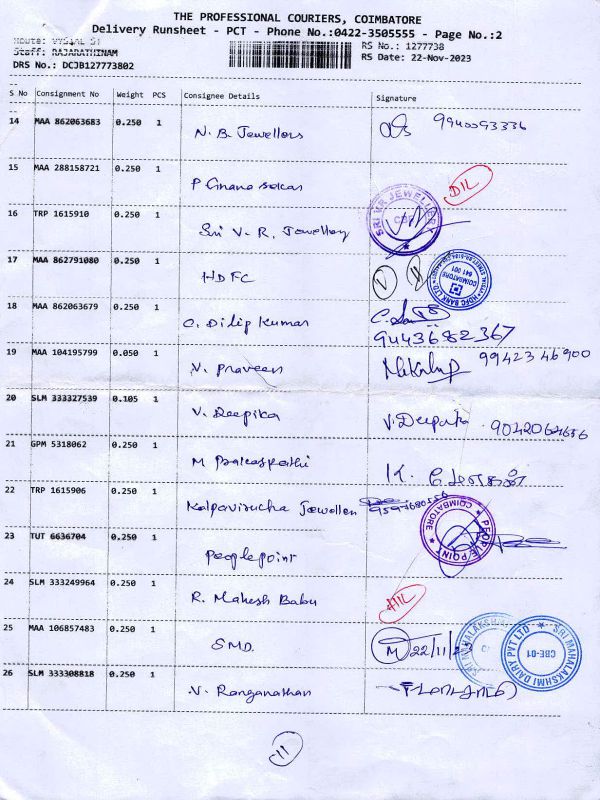 THE PROFESSIONAL COURIERS, COIMBATORE
Delivery Runsheet - PCT - Phone No.:0422-3505555 - Page No.:2
Staff: RAJARATHINAM
RS No.: 1277738
DRS No.: DCJB127773802
RS Date: 22-Nov-2023
S No Consignment No Weight PCS Consignee Details Signature
14 MAA 862063683 0.250 1 N. B Jewellers 9940093336
15 MAA 288158721 0.250 1 P Gnana sekar
16 TRP 1615910 0.250 1 Sri V. R. Jewellery SRI VR JEWELLERY CBE
17 MAA 862791080 0.250 1 HDFC HDFC BANK LTD COIMBATORE 641 001
18 MAA 862063679 0.250 1 C. Dilip Kumar 9443682367
19 MAA 104195799 0.050 1 V. Praveen 99423 46900
20 SLM 333327539 0.105 1 V. Deepika V. Deepika
21 GPM 5318062 0.250 1 M
22 TRP 1615906 0.250 1 Kalpavirucha Jewellers
23 TUT 6636704 0.250 1 Peoplepoint PEOPLE POINT COIMBATORE
24 SLM 333249964 0.250 1 R. Mahesh Babu
25 MAA 106857483 0.250 1 SMD. M 22/11/23 SRI MAHALAKSHMI DAIRY PVT LTD CBE-01
26 SLM 333308818 0.250 1 V. Ranganathan
11